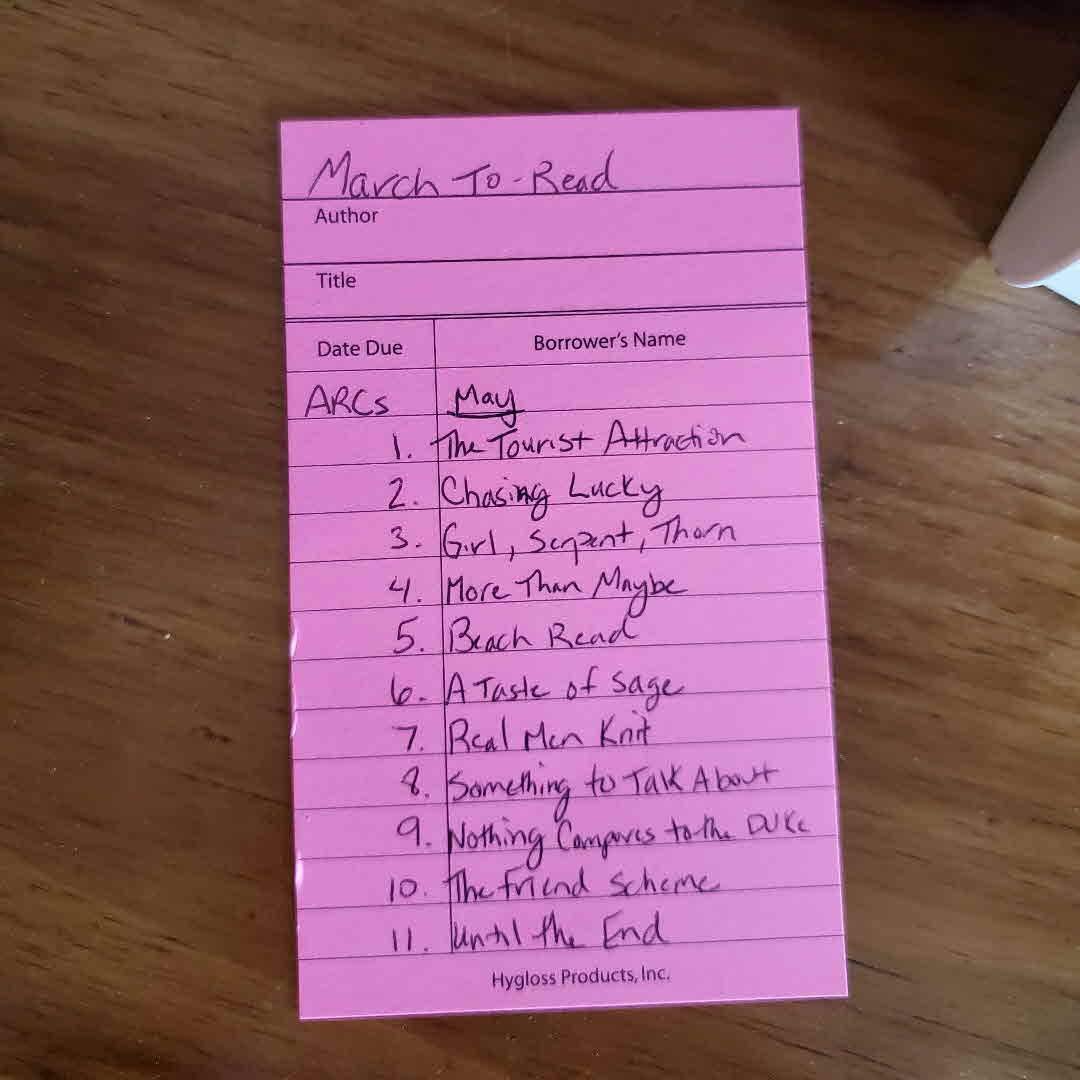 March To-Read
Author
Title
Date Due Borrower's Name
ARCs May
1. The Tourist Attraction
2. Chasing Lucky
3. Girl, Serpent, Thorn
4. More Than Maybe
5. Beach Read
6. A Taste of Sage
7. Real Men Knit
8. Something to Talk About
9. Nothing Compares to the Duke
10. The Friend Scheme
11. Until the End
Hygloss Products, Inc.